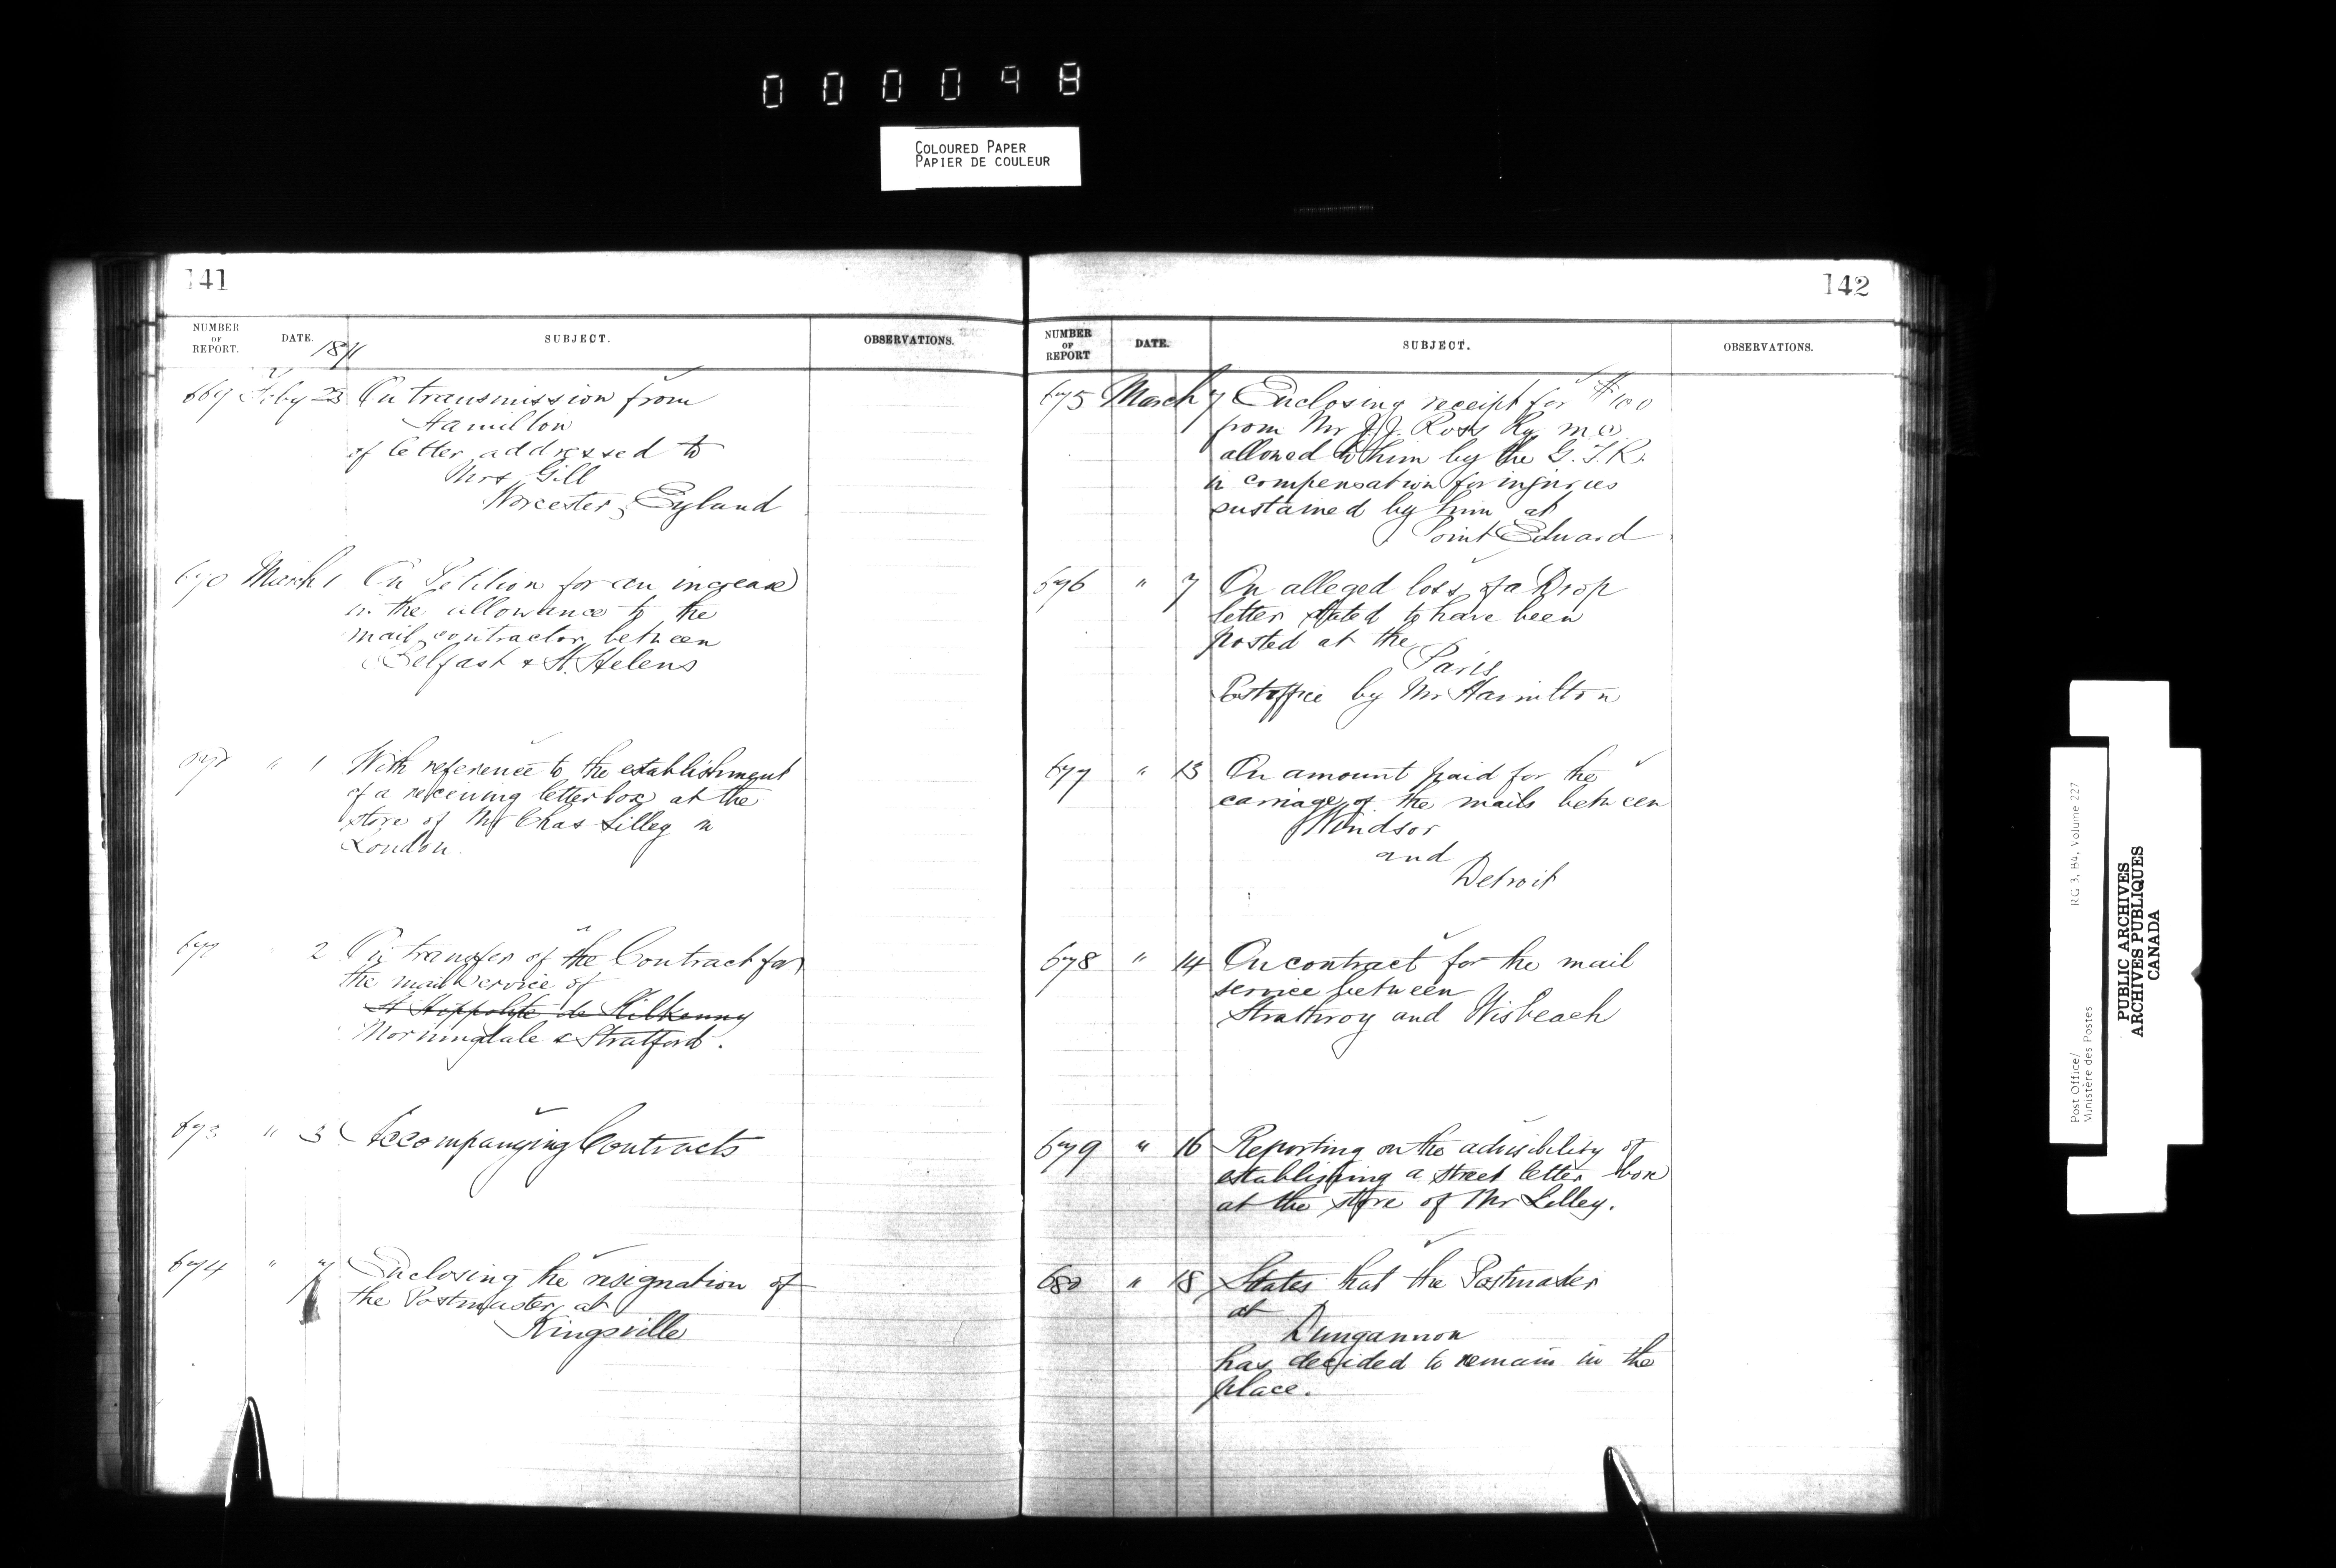 000098
COLOURED PAPER
PAPIER DE COULEUR
141
NUMBER OF REPORT.
DATE. 1871
SUBJECT.
OBSERVATIONS.
669 Feby 23 On transmission from
Hamilton
of letter addressed to
Mrs Gill
Worcester, England
670 March 1 On Petition for an increase
in the allowance to the
mail contractor between
Belfast & St. Helens
" 1 With reference to the establishment
of a receiving letter box at the
store of Mr Chas Lilley in
London.
2 On transfer of the Contract for
the mail service of
St Hippolyte de Kilkenny
Morningdale & Stratford.
673 " 3 Accompanying Contracts
674 " 7 Enclosing the resignation of
the Postmaster at
Kingsville
142
NUMBER OF REPORT
DATE.
SUBJECT.
OBSERVATIONS.
675 March 7 Enclosing receipt for $100
from Mr J.J. Ross Ry m.c.
allowed to him by the G.T.R.
in compensation for injuries
sustained by him at
Point Edward
676 " 7 On alleged loss of a Drop
letter stated to have been
posted at the
Paris
Postoffice by Mr Hamilton
677 " 13 On amount paid for the
carriage of the mails between
Windsor
and
Detroit
678 " 14 On contract for the mail
service between
Strathroy and Wisbeach
679 " 16 Reporting on the advisibility of
establishing a street letter box
at the store of Mr Lilley.
680 " 18 States that the Postmaster
at
Dungannon
has decided to remain in the
place.
Post Office/
Ministère des Postes
RG 3, B4, Volume 227
PUBLIC ARCHIVES
ARCHIVES PUBLIQUES
CANADA